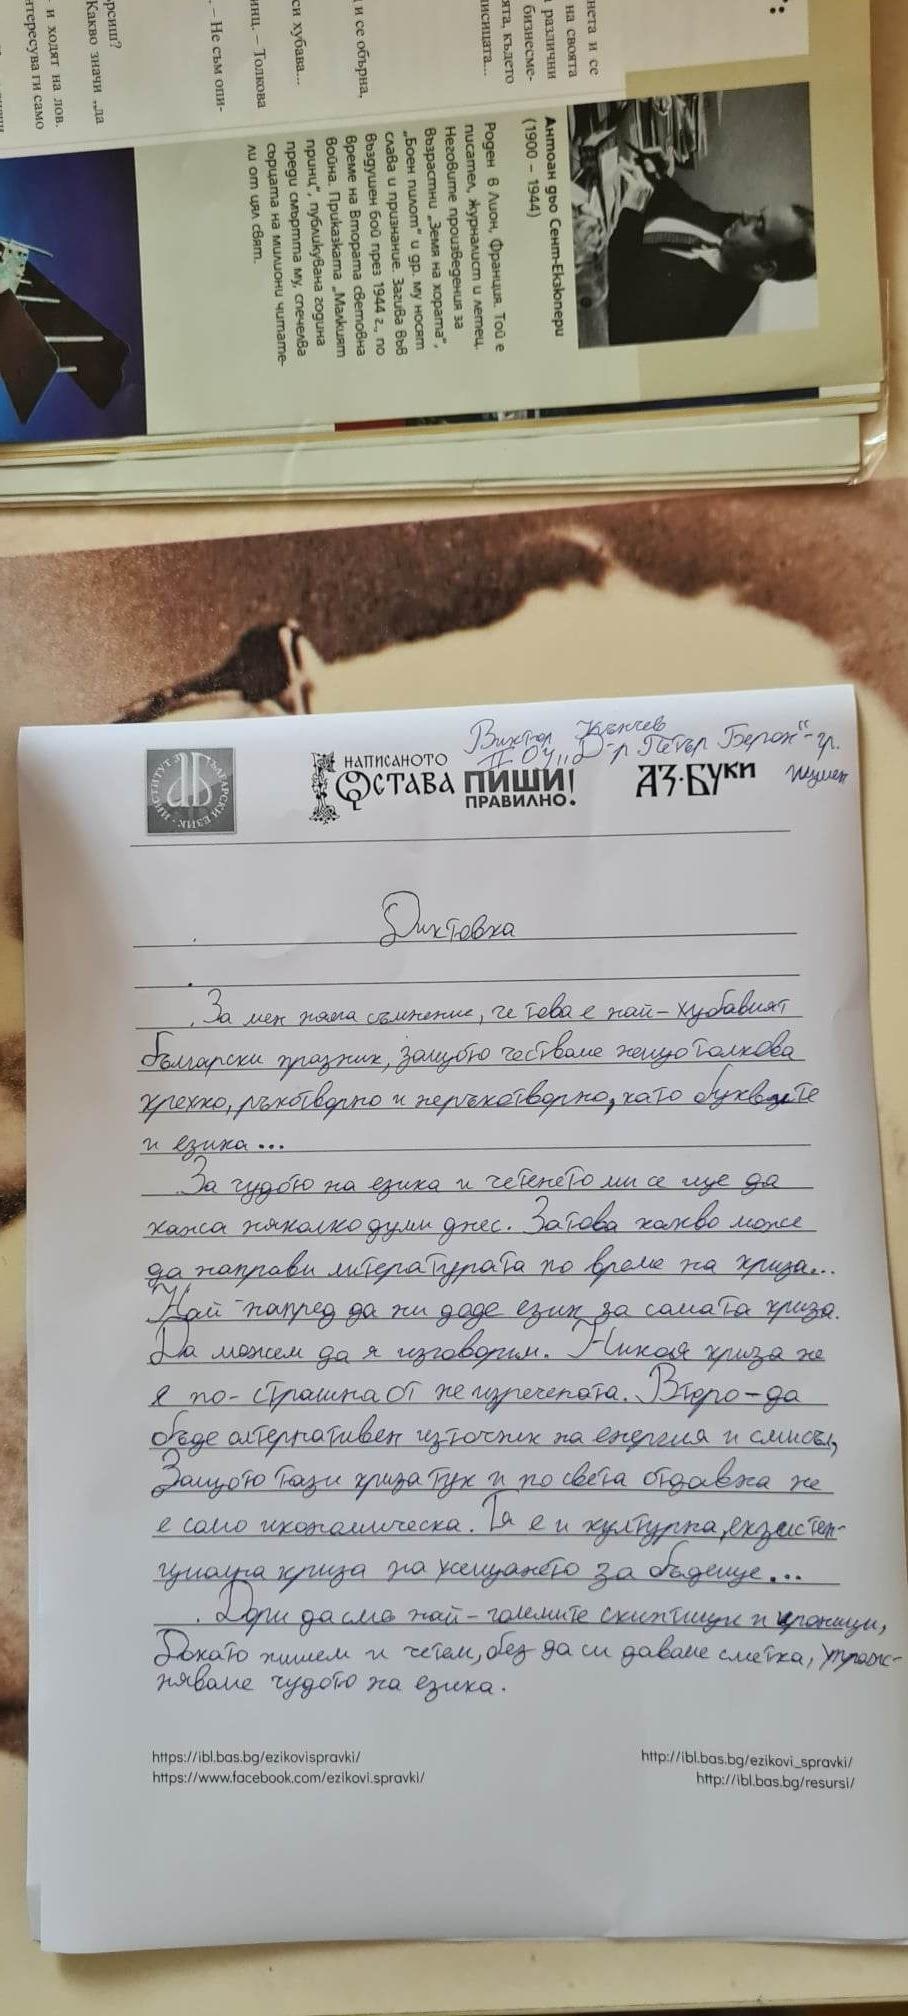 нета и се
на своята
различни
бизнесме-
ята, където
лисицата...
и се обърна,
си хубава...
инц. – Толкова
. – Не съм опи-
рсиш?
Какво значи „да
и ходят на лов.
нтересува ги само
Антоан дьо Сент-Екзюпери
(1900 – 1944)
Роден в Лион, Франция. Той е
писател, журналист и летец.
Неговите произведения за
възрастни „Земя на хората“,
„Боен пилот“ и др. му носят
слава и признание. Загива във
въздушен бой през 1944 г., по
време на Втората световна
война. Приказката „Малкият
принц“, публикувана година
преди смъртта му, спечелва
сърцата на милиони читате-
ли от цял свят.
Виктор Кънчев
II ОУ „Д-р Петър Берон“ - гр.
ИНСТИТУТ ЗА БЪЛГАРСКИ ЕЗИК
НАПИСАНОТО
ОСТАВА ПИШИ
ПРАВИЛНО!
АЗ·БУКИ
Диктовка
За мен няма съмнение, че това е най-хубавият
български празник, защото честваме нещо толкова
крехко, ръкотворно и неръкотворно, като буквите
и езика...
За чудото на езика и четенето ми се ще да
кажа няколко думи днес. Затова какво може
да направи литературата по време на криза...
Най-напред да ни даде език за самата криза.
Да можем да я изговорим. Никоя криза не
я по-страшна от не изречената. Второ-да
бъде алтернативен източник на енергия и смисъл,
Защото тази криза тук и по света отдавна не
е само икономическа. Тя е и културна, екзистен-
циална криза на усещането за бъдеще...
Дори да сме най-големите скиптици и ироници,
Докато пишем и четем, без да си даваме сметка, упраж-
няваме чудото на езика.
https://ibl.bas.bg/ezikovispravki/
https://www.facebook.com/ezikovi.spravki/
http://ibl.bas.bg/ezikovi_spravki/
http://ibl.bas.bg/resursi/